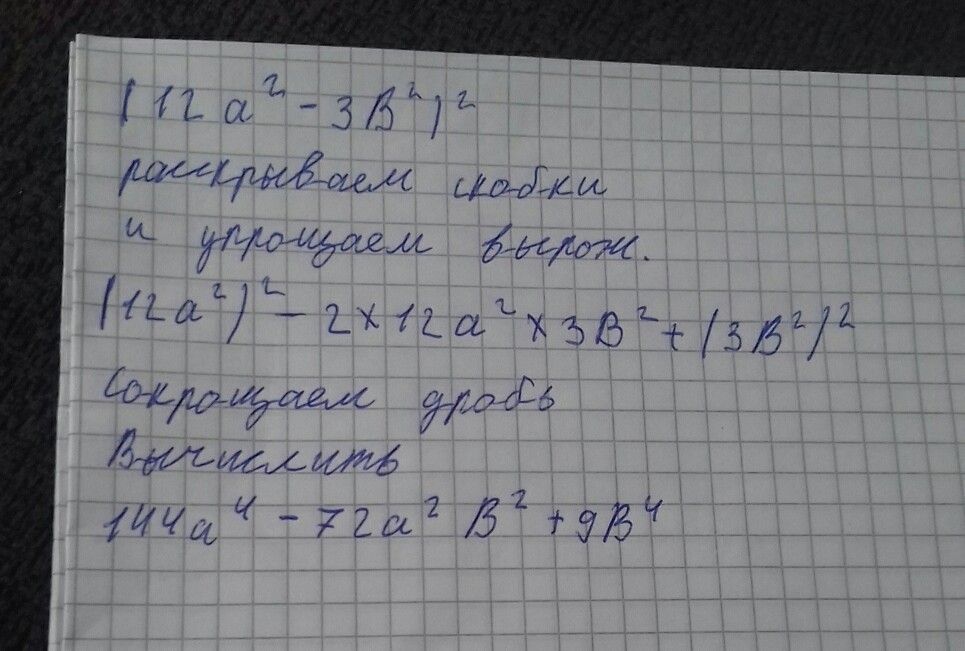 (12a² - 3B²)²
расскрываем скобки
и упрощаем вырож.
(12a²)² - 2×12a²×3B² + (3B²)²
Сокрощаем дробь
Вычислить
144a⁴ - 72a² B² + 9B⁴